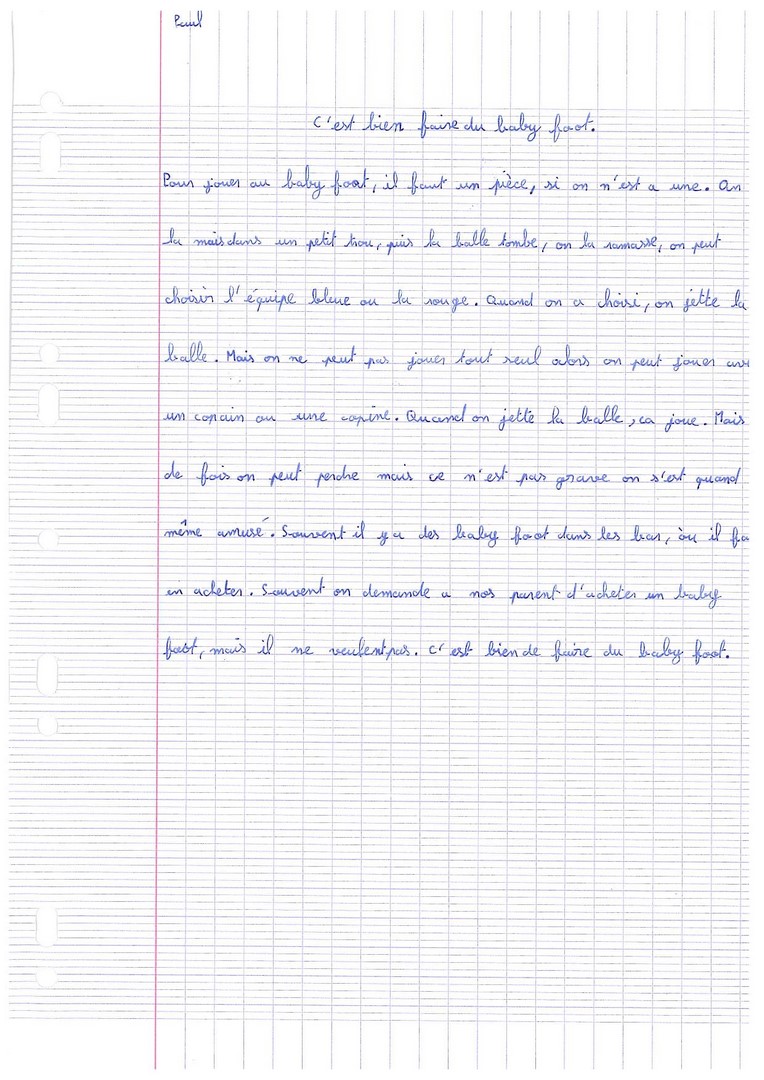 Paul
C'est bien faire du baby foot.
Pour jouer au baby foot, il faut un pièce, si on n'est a une. On
la mais dans un petit trou, puis la balle tombe, on la ramasse, on peut
choisir l'équipe bleue ou la rouge. Quand on a choisi, on jette la
balle. Mais on ne peut pas jouer tout seul alors on peut jouer
un copain ou une copine. Quand on jette la balle, ca joue. Mais
de fois on peut perdre mais ce n'est pas grave on s'est quand
même amusé. Souvent il y a des baby foot dans les bar, òu il
en acheter. Souvent on demande a nos parent d'acheter un baby
foot, mais il ne veulent pas. C'est bien de faire du baby foot.